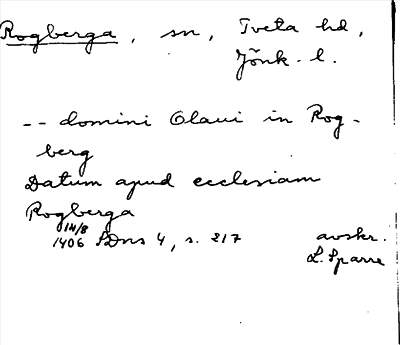 Rogberga, sn, Tveta hd,
Jönk. l.
-- domini Olaui in Rog-
berg
Datum apud ecclesiam
Rogberga
14/8
1406 SDns 4, s. 217
avskr.
L. Sparre